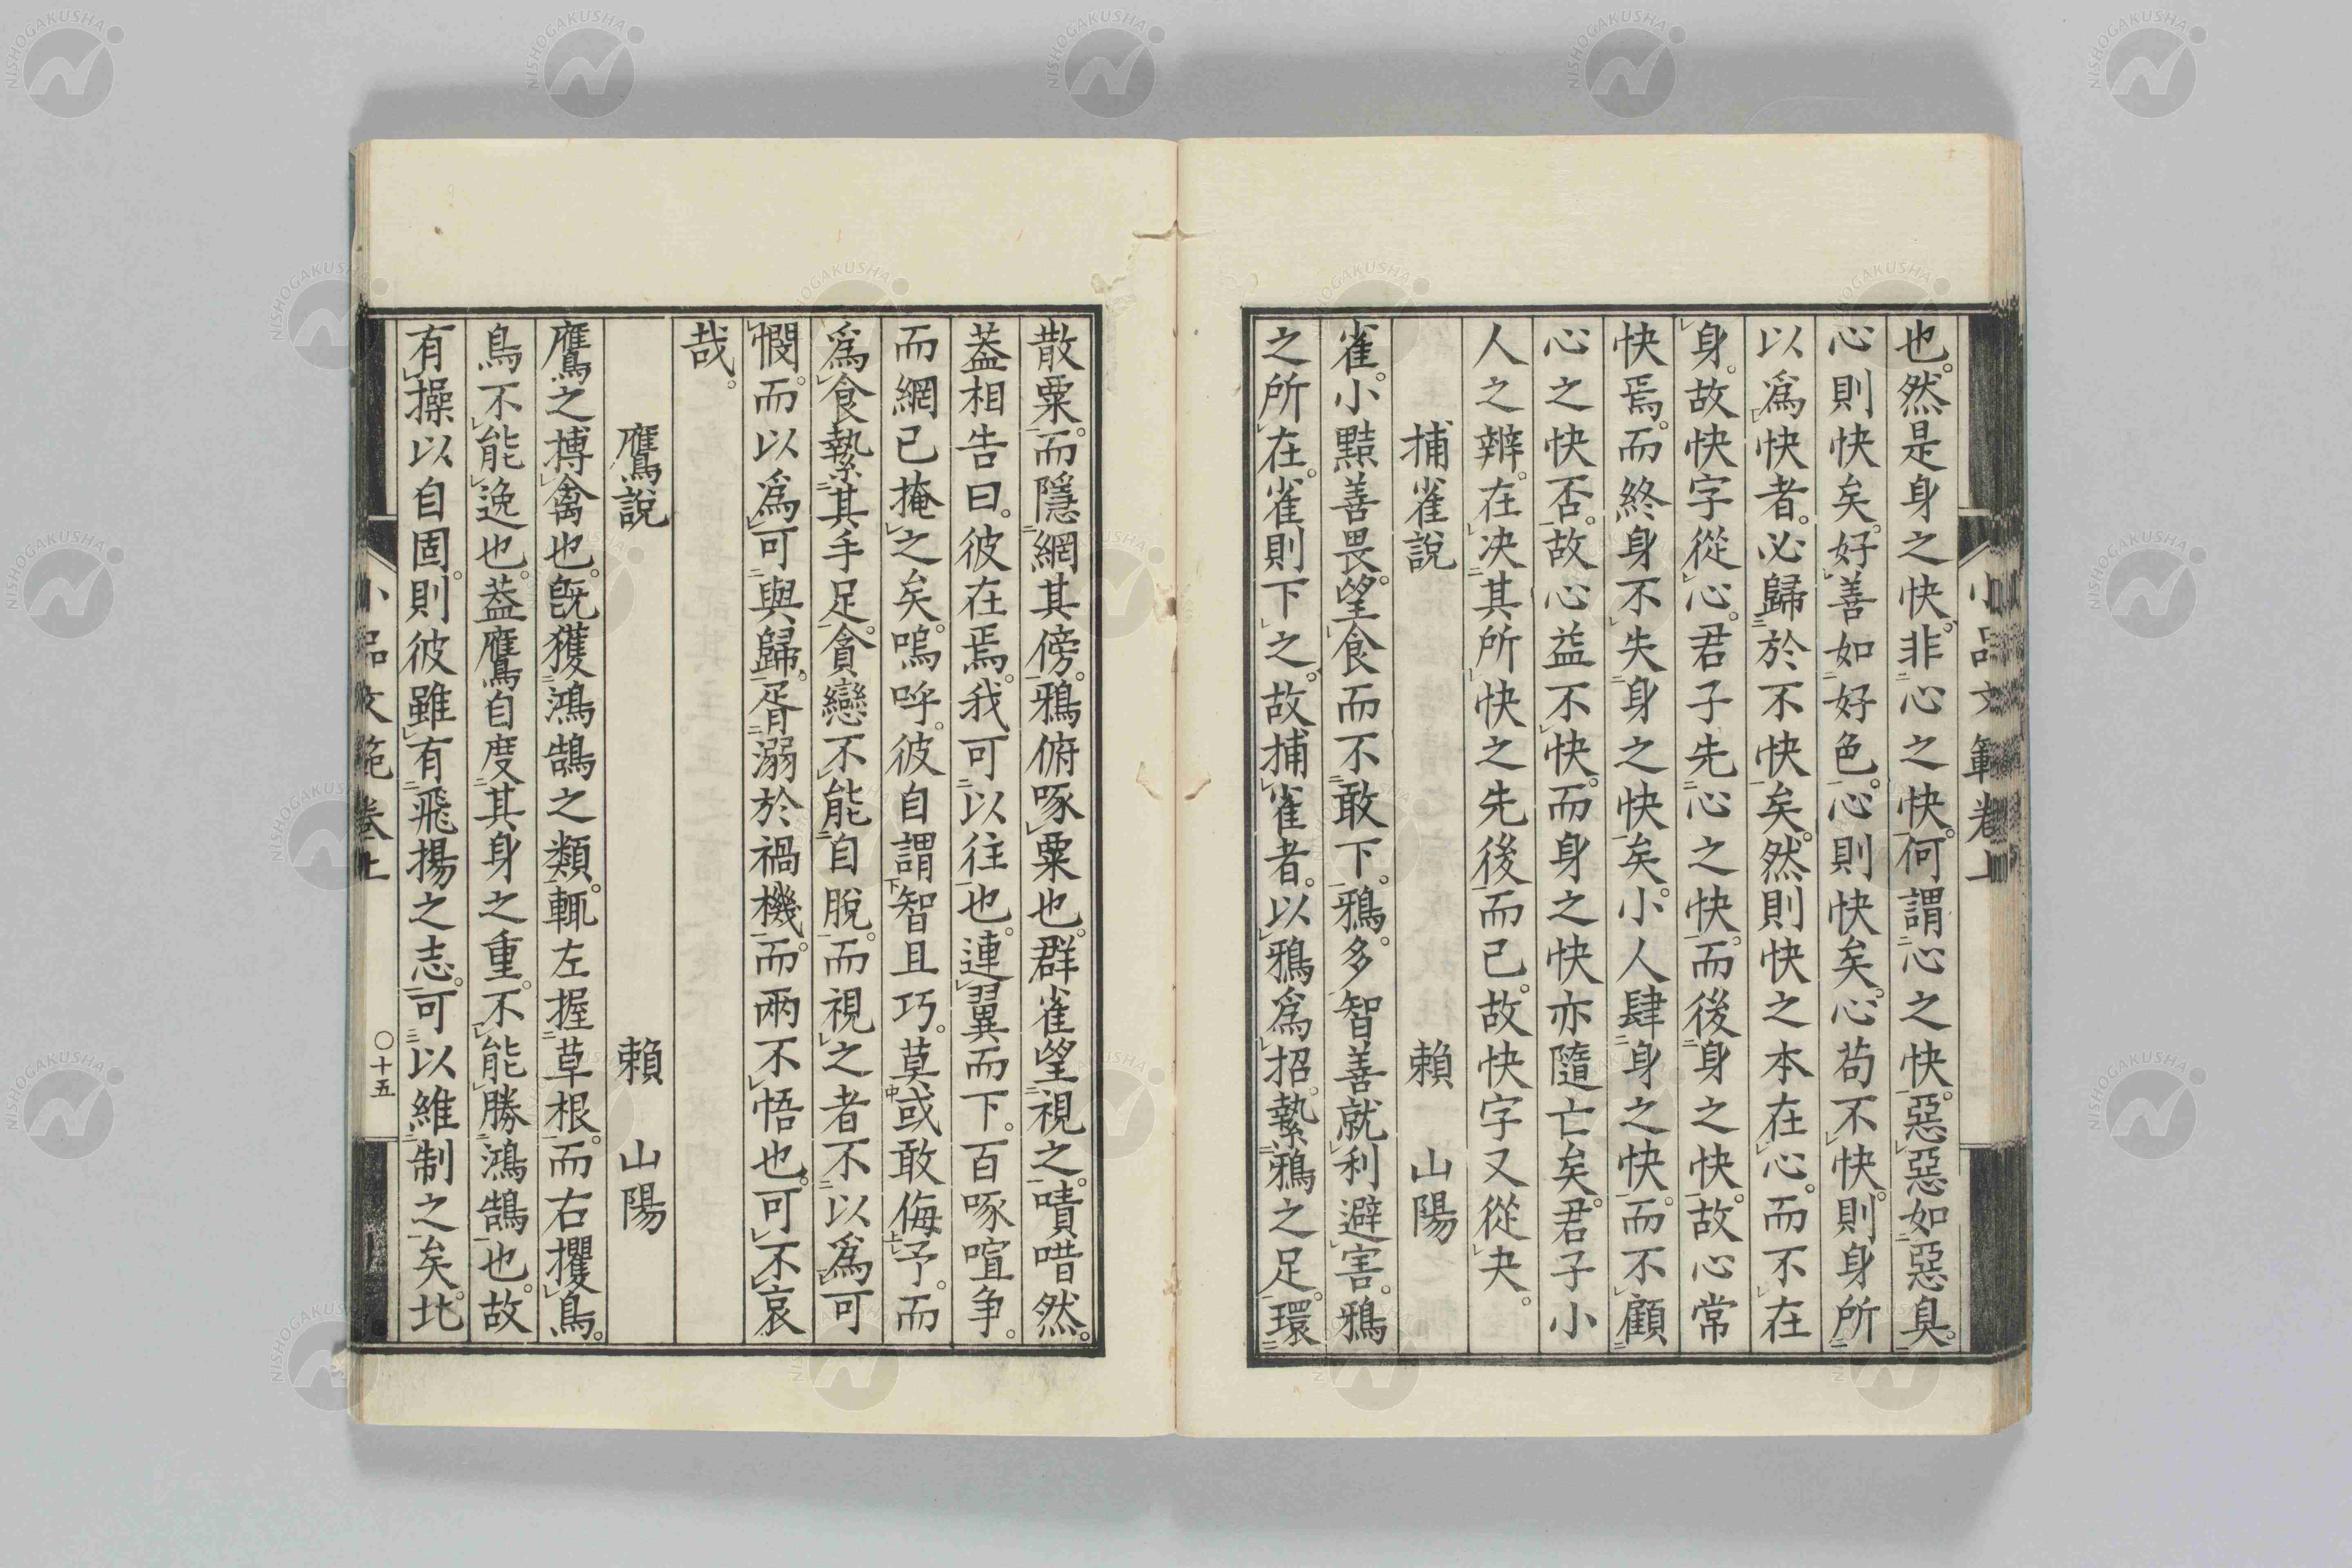 也。然是身之快。非心之快。何謂心之快。惡惡如惡臭。
心則快矣。好善如好色。心則快矣。心苟不快。則身所
以爲快者。必歸於不快矣。然則快之本在心。而不在
身。故快字從心。君子先心之快。而後身之快。故心常
快焉。而終身不失身之快矣。小人肆身之快。而不顧
心之快否。故心益不快。而身之快亦隨亡矣。君子小
人之辨。在决其所快之先後而已。故快字又從夬。
捕雀說 賴 山陽
雀。小黠善畏。望食而不敢下。鴉。多智善就利避害。鴉
之所在。雀則下之。故捕雀者。以鴉爲招。縶鴉之足。環
小品文範卷上
散粟。而隱網其傍。鴉俯啄粟也。群雀望視之。嘖唶然。
葢相告曰。彼在焉。我可以往也。連翼而下。百啄喧争。
而網已掩之矣。嗚呼。彼自謂智且巧。莫或敢侮予。而
爲食縶其手足。貪戀不能自脫。而視之者不以爲可
憫。而以爲可與歸。胥溺於禍機。而兩不悟也。可不哀
哉。
鷹說 賴 山陽
鷹之搏禽也。旣獲鴻鵠之類。輒左握草根。而右攫鳥。
鳥不能逸也。葢鷹自度其身之重。不能勝鴻鵠也。故
有操以自固。則彼雖有飛揚之志。可以維制之矣。北
小品文範卷上 〇十五
NISHOGAKUSHA